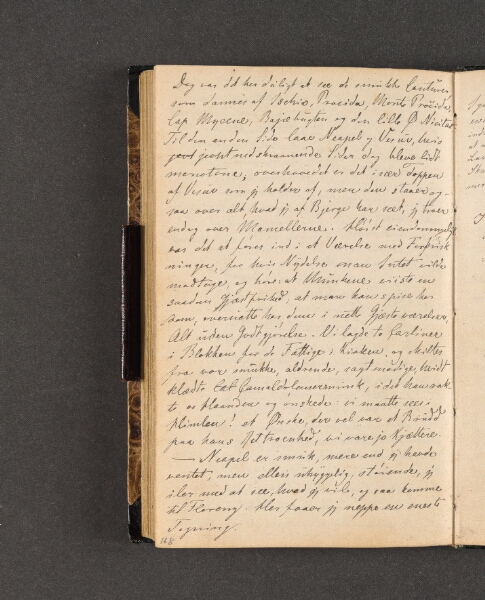 Dag var det her deiligt at see de smukke Conturer
som dannes af Ischia, Procida, Monte Procida,
Cap Mycene, Bajæbugten og den lille Ø Nisitas
Til den anden Side laae Neapel og Vesuv, hvis
jevnt nedskraanende Sider dog bleve lidt
monotone; overhovedet er det især Toppen
af Vesuv som jeg holder af, men den staaer og-
saa over alt, hvad jeg af Bjerge har seet, jeg troer
endog over Mamellerne. Høist eiendommeligt
var det at føres ind i et Værelse med Forfrisk-
ninger, for hvis Nydelse man Intet vilde
modtage, og høre at Munkene viiste en
saadan Gjæstfrihed, at man kan spise her
som, overnatte hos dem i nette Gjæsteværelser,
Alt uden Godtgjørelse. Vi lagde to Carliner
i Blokken for de Fattige i Kirken, og skiltes
fra vor smukke, aldrende, sagtmodige, hvidt
klædte Camaldolensermunk, idet han rak-
te os Haanden og ønskede vi maatte sees i
Himlen! et Ønske, der vel var et Brud
paa hans Rettroenhed, vi vare jo Kjættere.
— Neapel er smuk, mere end jeg havde
ventet, men ellers uhyggelig, støiende, jeg
iler med at see, hvad jeg vil, og saa komme
til Florenz. Her faaer jeg neppe en eneste
Tegning.
168